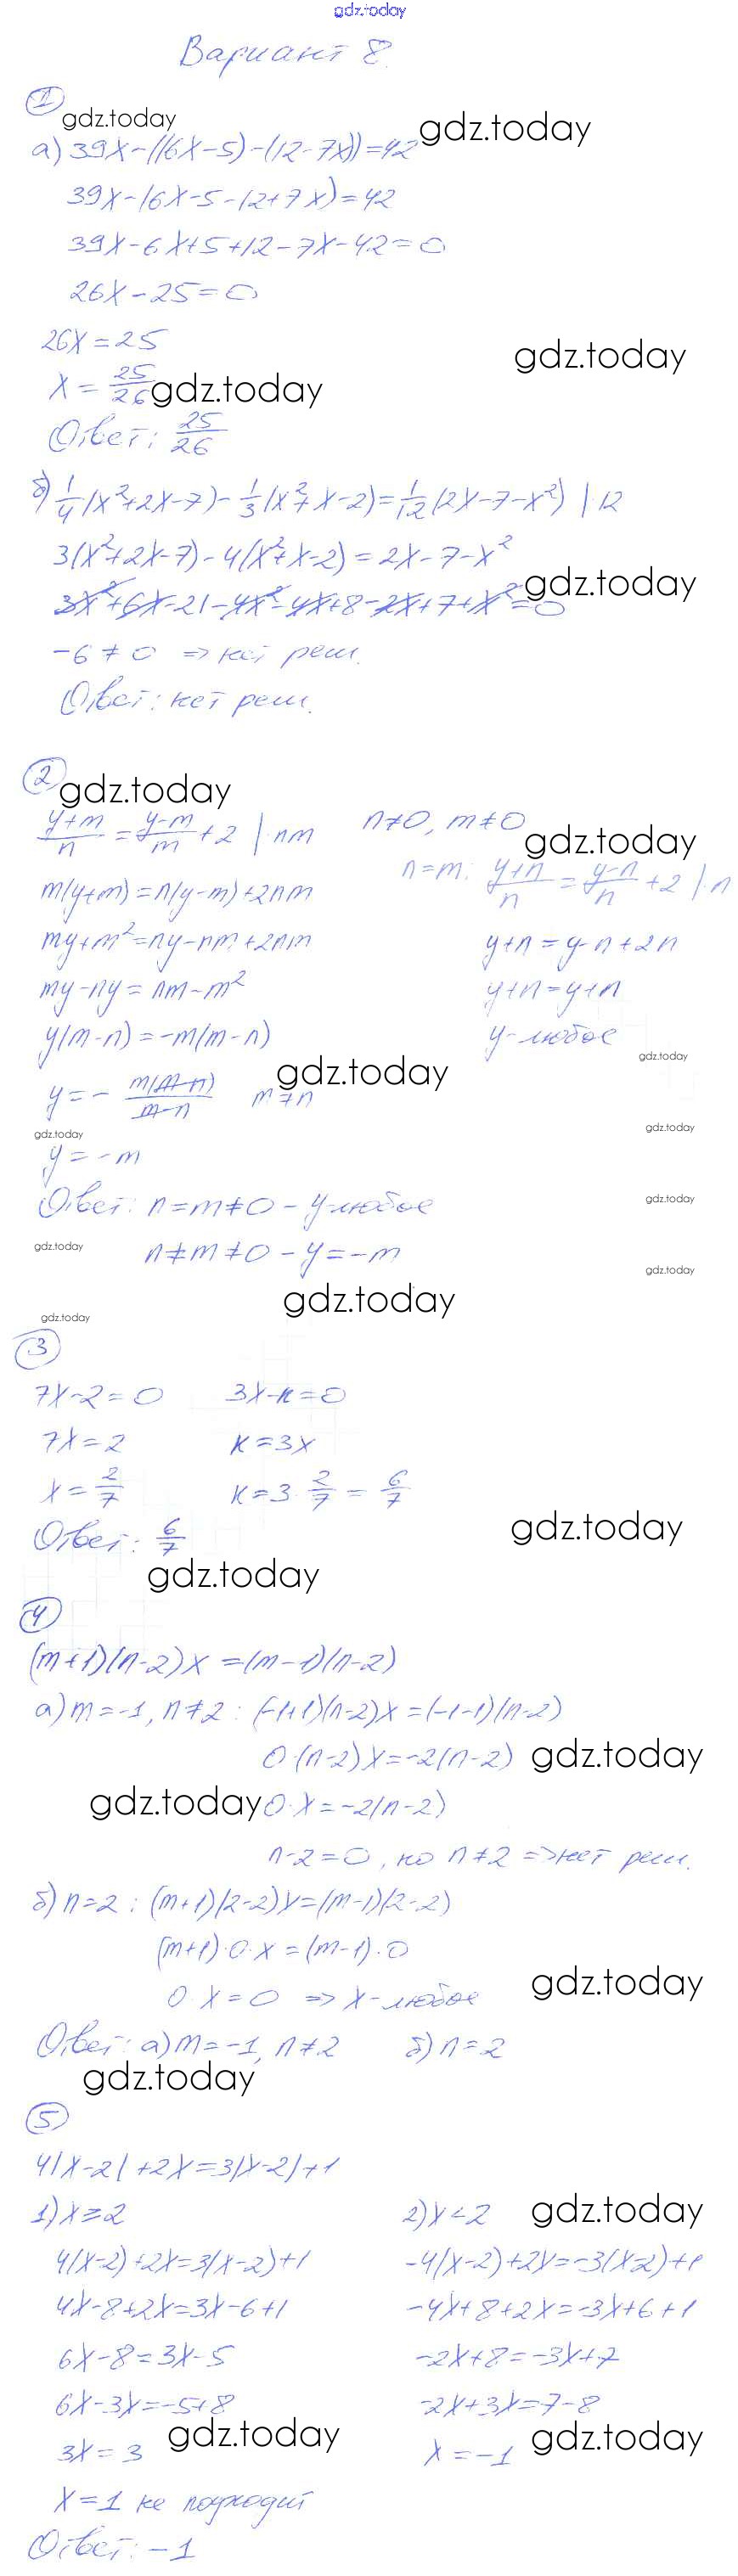 gdz.today
Вариант 8.
1
gdz.today
gdz.today
а) 39x-((6x-5)-(12-7x))=42
39x-(6x-5-12+7x)=42
39x-6x+5+12-7x-42=0
26x-25=0
26x=25
gdz.today
x=25/26
gdz.today
Ответ: 25/26
б) 1/4(x²+2x-7)-1/3(x²+x-2)=1/12(2x-7-x²) |·12
3(x²+2x-7)-4(x²+x-2)=2x-7-x²
gdz.today
3x²+6x-21-4x²-4x+8-2x+7+x²=0
-6≠0 => нет реш.
Ответ: нет реш.
2
gdz.today
(y+m)/n=(y-m)/m+2 |·nm
n≠0, m≠0
gdz.today
n=m: (y+n)/n=(y-n)/n+2 |·n
m(y+m)=n(y-m)+2nm
my+m²=ny-nm+2nm
y+n=y-n+2n
my-ny=nm-m²
y+n=y+n
y(m-n)=-m(m-n)
y-любое
gdz.today
gdz.today
y=-m(m-n)/(m-n) m≠n
gdz.today
gdz.today
y=-m
Ответ: n=m≠0 - y-любое
gdz.today
gdz.today
n≠m≠0 - y=-m
gdz.today
gdz.today
gdz.today
3
7x-2=0 3x-к=0
7x=2 к=3x
x=2/7 к=3·2/7=6/7
gdz.today
Ответ: 6/7
gdz.today
4
(m+1)(n-2)x=(m-1)(n-2)
а) m=-1, n≠2: (-1+1)(n-2)x=(-1-1)(n-2)
0·(n-2)x=-2(n-2)
gdz.today
gdz.today
0·x=-2(n-2)
n-2=0, но n≠2 => нет реш.
б) n=2: (m+1)(2-2)x=(m-1)(2-2)
(m+1)·0·x=(m-1)·0
gdz.today
0·x=0 => x-любое
Ответ: а) m=-1, n≠2 б) n=2
gdz.today
5
4|x-2|+2x=3|x-2|+1
1) x≥2
2) x<2
gdz.today
4(x-2)+2x=3(x-2)+1
-4(x-2)+2x=-3(x-2)+1
4x-8+2x=3x-6+1
-4x+8+2x=-3x+6+1
6x-8=3x-5
-2x+8=-3x+7
6x-3x=-5+8
-2x+3x=7-8
gdz.today
gdz.today
3x=3
x=-1
x=1 не подходит
Ответ: -1